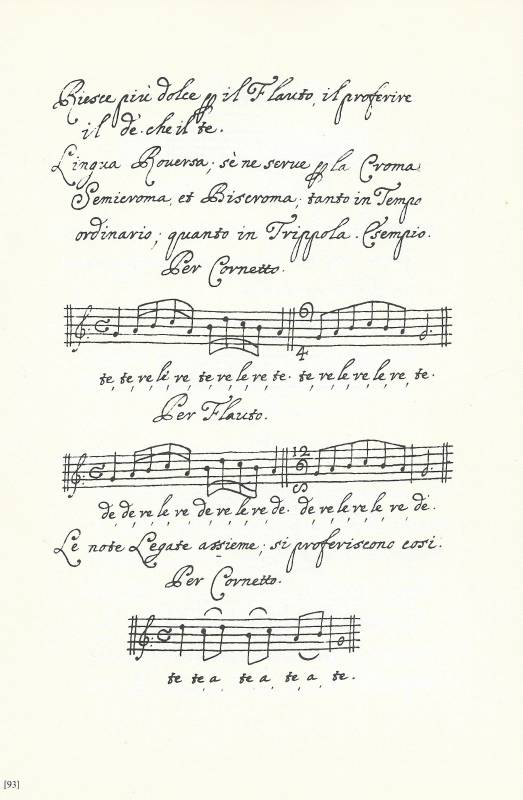 Riesce più dolce p il Flauto, il proferire
il de. che il te.
Lingua Roversa; sè ne serve p la Croma
Semicroma, et Biscroma; tanto in Tempo
ordinario; quanto in Trippola. Esempio.
Per Cornetto.
6
4
te, te, re, le, re, te, re, le, re, te. te, re, le, re, le, re, te.
Per Flauto.
12
6
8
de, de, re, le, re, de, re, le, re, de. de, re, le, re, le, re, de.
Le note Legate assieme; si proferiscono cosi.
Per Cornetto.
te te, a te, a, te, a, te.
[93]